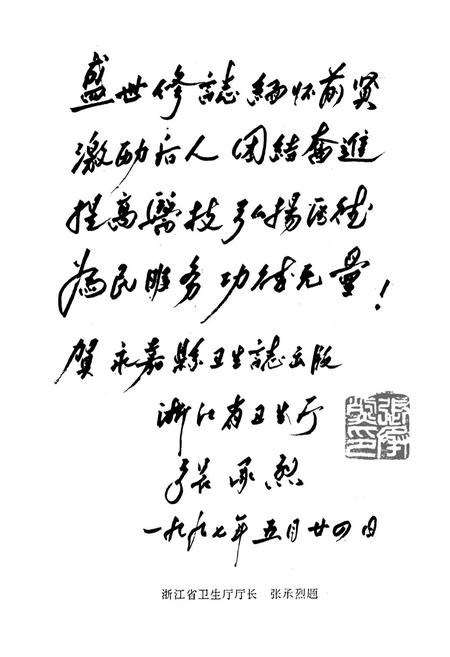 盛世修誌缅怀前贤
激励后人团结奋進
提高醫技弘揚医德
為民服务功德无量!
賀永嘉縣卫生誌出版
浙江省卫生厅
张承烈
一九九七年五月廿四日
张承烈印
浙江省卫生厅厅长 张承烈题